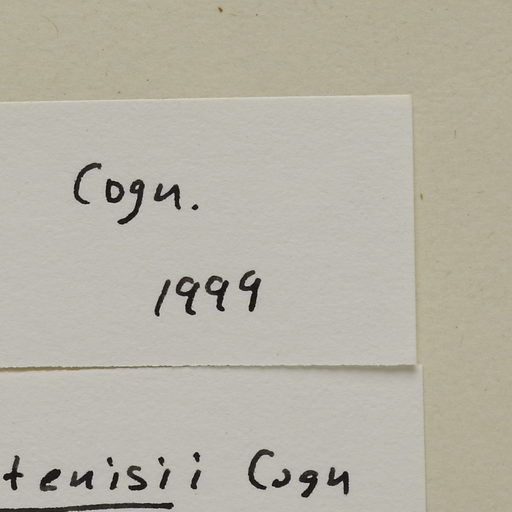 Cogn.
1999
tenisii Cogn